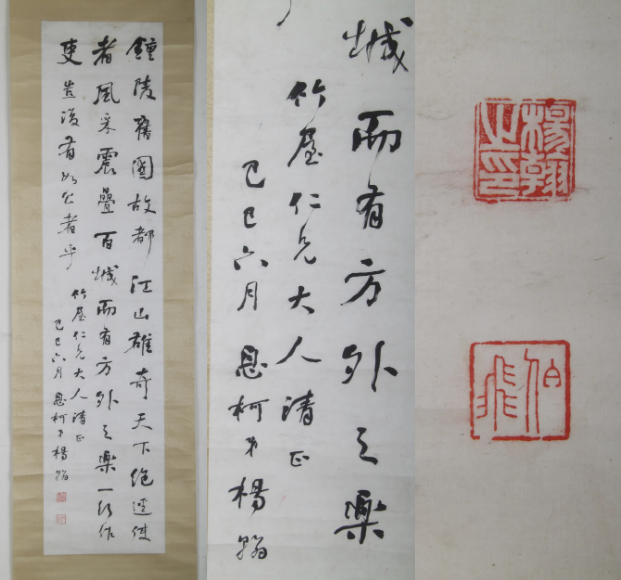 鐘陵舊國故都江山雄奇天下絕使
者風采震疊百城而有方外之樂一行作
吏豈復有如公者乎
竹屋仁兄大人請正
己巳六月息柯弟楊翰
城而有方外之樂
竹屋仁兄大人請正
己巳六月息柯弟楊翰
楊翰之印
伯飛